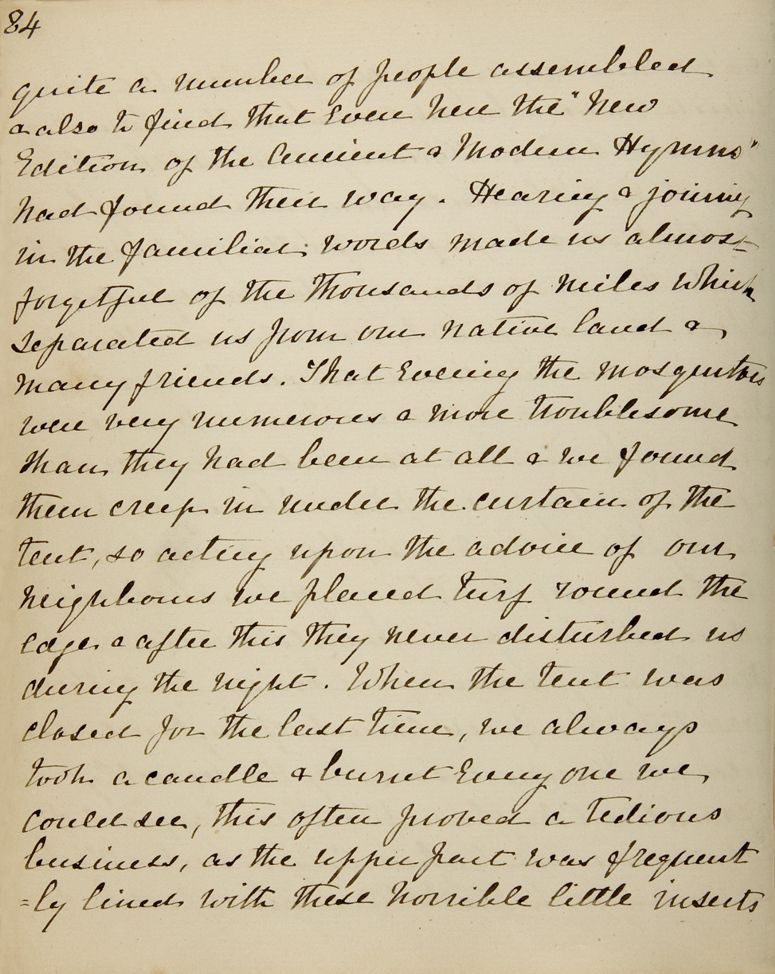 84
quite a number of people assembled
& also to find that even here the "New
Edition of the Ancient & Modern Hymns"
had found their way. Hearing & joining
in the familiar words made us almost
forgetful of the thousands of miles which
separated us from our native land &
many friends. That evening the mosquitoes
were very numerous & more troublesome
than they had been at all & we found
them creep in under the curtain of the
tent, so acting upon the advice of our
neighbours we placed turf round the
edge & after this they never disturbed us
during the night. When the tent was
closed for the last time, we always
took a candle & burnt every one we
could see, this often proved a tedious
business, as the upper part was frequent
=ly lined with these horrible little insects